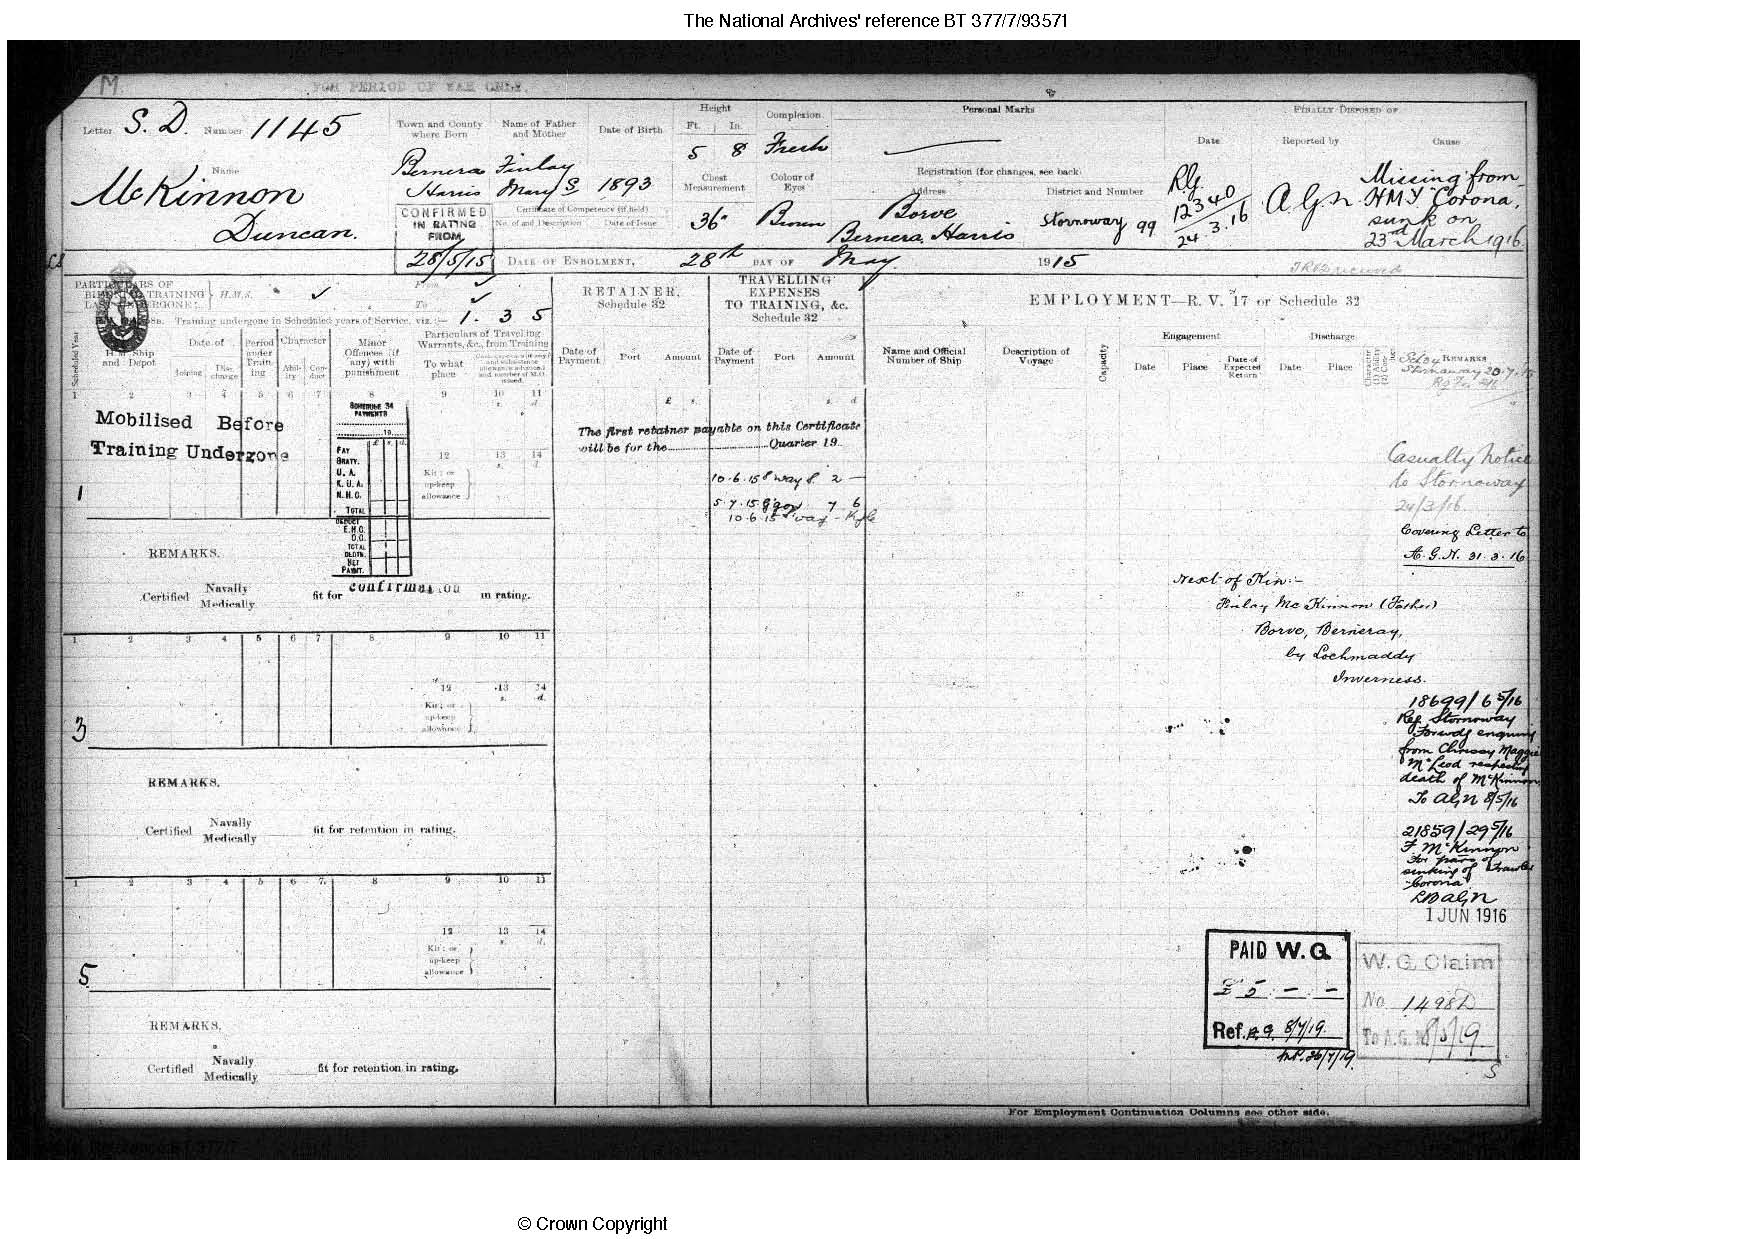 The National Archives' reference BT 377/7/93571
M.
FOR PERIOD OF WAR ONLY.
Letter S. D. Number 1145
Name
McKinnon
Duncan.
Town and County where Born
Bernera
Harris
Name of Father and Mother
Finlay
Mary S.
Date of Birth
1893
CONFIRMED
IN RATING
FROM
28/5/15
Certificate of Competency (if held)
No. and Description Date of Issue
Height
Ft. In.
5 8
Chest Measurement
36"
Complexion
Fresh
Colour of Eyes
Brown
Personal Marks
Registration (for changes, see back)
Address
Borve
Bernera, Harris
District and Number
Stornoway 99
FINALLY DISPOSED OF
Date
12340
24.3.16
Reported by
A.G.N.
Cause
Missing from
HMY Corona,
sunk on
23rd March 1916.
DATE OF ENROLMENT, 28th DAY OF May 1915
PARTICULARS OF
TRAINING
H.M.S.
From
To
Training undergone in Scheduled years of Service, viz.:— 1. 3 5
Scheduled Year
H.M. Ship and Depot
Date of
Joining Discharge
Period under Training
Character
Ability Conduct
Minor Offences (if any) with punishment
Particulars of Traveling Warrants, &c., from Training
To what place
RETAINER.
Schedule 32
Date of Payment Port Amount
TRAVELLING
EXPENSES
TO TRAINING, &c.
Schedule 32
Date of Payment Port Amount
EMPLOYMENT—R. V. 17 or Schedule 32
Name and Official Number of Ship
Description of Voyage
Capacity
Engagement
Date Place Date of Expected Return
Discharge
Date Place
REMARKS
Stornoway 20.7.15
1 2 3 4 5 6 7 8 9 10 11
s. d.
£ s. s. d.
Mobilised Before
Training Undergone
SCHEDULE 34
PAYMENTS
19
£ s. d.
PAY
GRATY.
U. A.
K. U. A.
N. H. C.
TOTAL
DEDUCT
E.H.C.
TOTAL
DEDTN.
NET
PAYMT.
12 13 14
Kit; or
up-keep
allowance
1
The first retainer payable on this Certificate
will be for the Quarter 19
10.6.15 2 —
5.7.15 7 6
10.6.15 Kyle
REMARKS.
Certified Navally Medically fit for confirmation in rating.
Casualty Notice
to Stornoway
24/3/16
Covering Letter to
A. G. N. 31.3.16
Next of Kin:—
Finlay McKinnon (Father)
Borve, Berneray,
by Lochmaddy
Inverness.
1 2 3 4 5 6 7 8 9 10 11
12 13 14
s. d.
Kit; or
up-keep
allowance
3
18699/6 5/16
Reg. Stornoway
Forwds enquiry
from Chrissy Maggie
McLeod respecting
death of McKinnon
To AGN 8/5/16
REMARKS.
Certified Navally Medically fit for retention in rating.
21859/29 5/16
F. McKinnon
For pars of
sinking of Trawler
"Corona"
AGN
1 JUN 1916
1 2 3 4 5 6 7 8 9 10 11
12 13 14
s. d.
Kit; or
up-keep
allowance
5
PAID W.G.
£ 5 — —
Ref. A.G. 8/7/19.
26/7/19.
W.G. Claim
No. 1498D
To A.G. 8/5/19.
S
REMARKS.
Certified Navally Medically fit for retention in rating.
For Employment Continuation Columns see other side.
© Crown Copyright